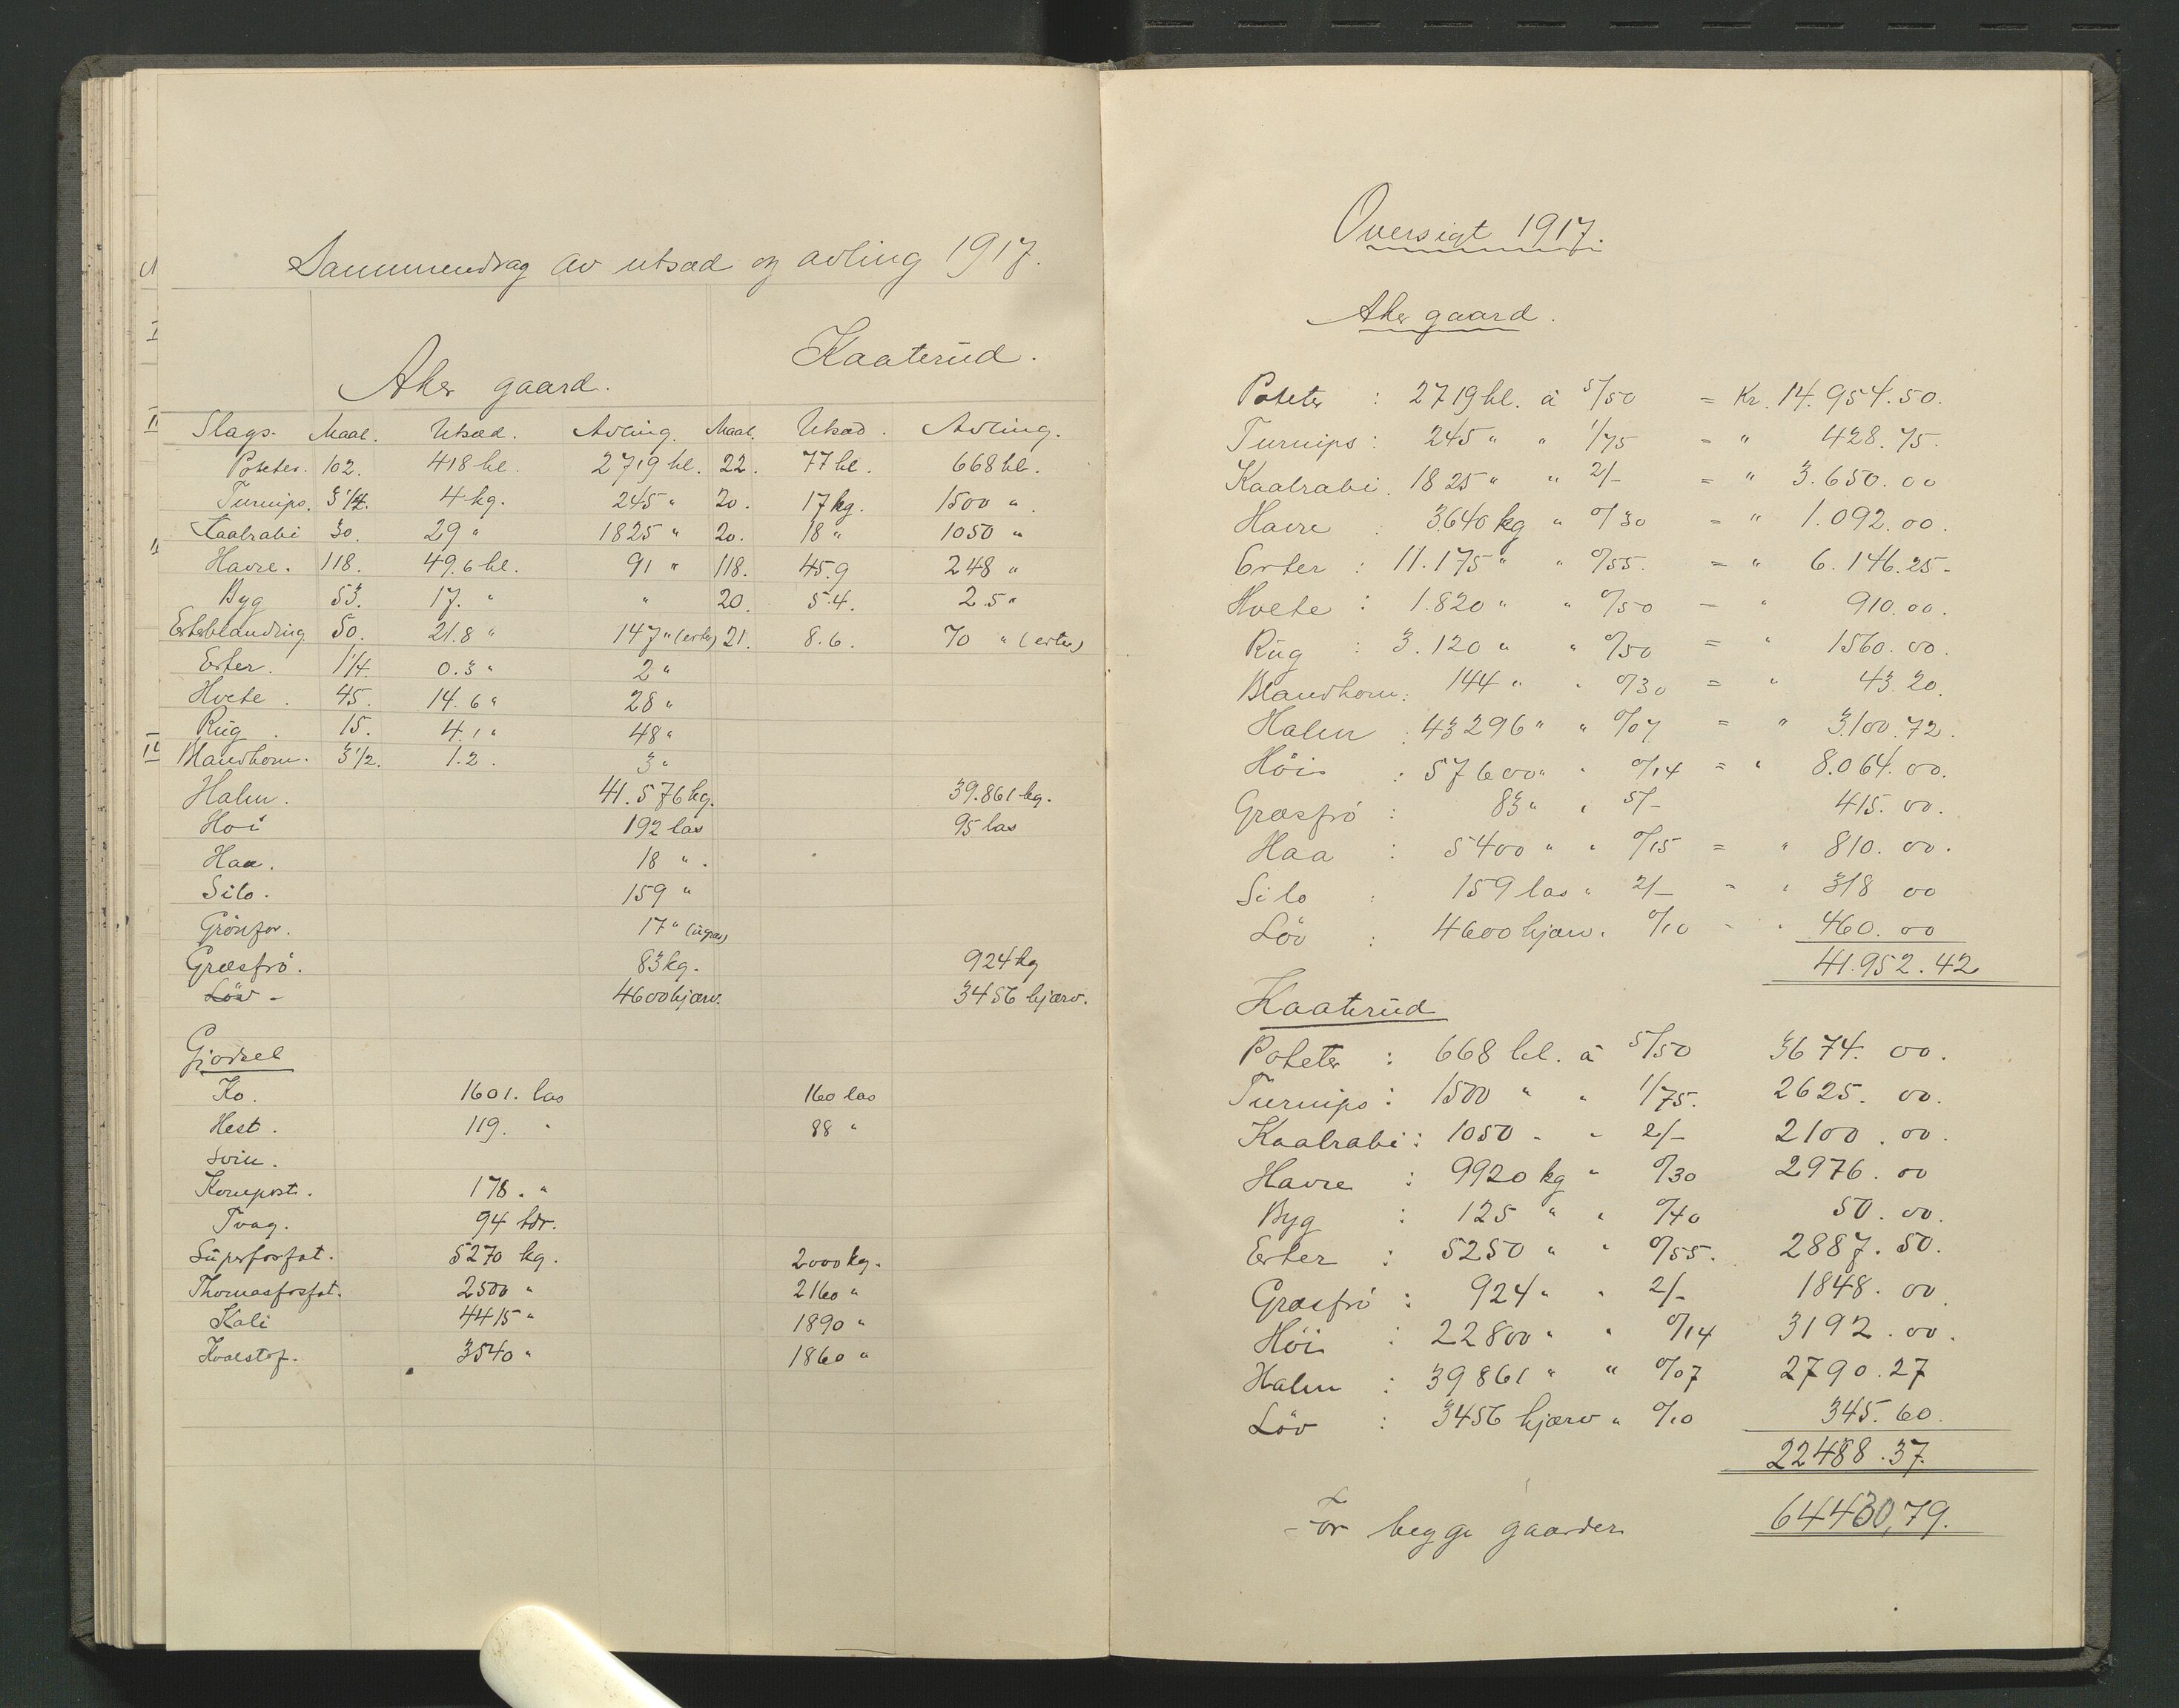 Sammendrag av utsæd og avling 1917.
Aker gaard. Kaaterud.
Slags. Maal. Utsæd. Avling. Maal. Utsæd. Avling.
Poteter. 102. 418 hl. 2719 hl. 22. 77 hl. 668 hl.
Turnips. 3 1/2. 4 kg. 245 " 20. 17 kg. 1500 "
Kaalrabi 30. 29 " 1825 " 20. 18 " 1050 "
Havre. 118. 49.6 hl. 91 " 118. 45.9 248 "
Byg 53. 17. " " 20. 5.4. 2.5 "
Erteblanding 50. 21.8 " 147 " (erter) 21. 8.6. 70 " (erter)
Erter. 1 1/4. 0.3 " 2 "
Hvete. 45. 14.6 " 28 "
Rug. 15. 4.1 " 48 "
Blandkorn. 3 1/2. 1.2. 3 "
Halm. 41.576 kg. 39.861 kg.
Höi 192 las 95 las
Haa. 18 ".
Silo. 159 "
Grönfor. 17 "
Græsfrö. 83 kg. 924 kg
Löv - 4600 kjærv. 3456 kjærv.
Gjødsel
Ko. 1601. las 160 las
Hest. 119. " 88 "
Svin.
Kompost. 178. "
Tvag. 94 tdr.
Superfosfat. 5270 kg. 2000 kg.
Thomasfosfat. 2500 " 2160 "
Kali 4415 " 1890 "
Kvælstof. 3540 " 1860 "
Oversigt 1917.
Aker gaard.
Poteter : 2719 hl. à 5/50 = Kr. 14.954.50.
Turnips : 245 " " 1/75 = " 428.75.
Kaalrabi. 1825 " " 2/- = " 3.650.00
Havre : 3640 kg " 0/30 = " 1.092.00.
Erter : 11.175 " " 0/55. = " 6.146.25-
Hvete : 1.820 " " 0/50 = " 910.00.
Rug : 3.120 " " 0/50 = " 1560.00.
Blandkorn : 144 " " 0/30 = " 43.20.
Halm : 43296 " " 0/07 = " 3.100.72.
Höi : 57600 " " 0/14 = " 8.064.00.
Græsfrö : 83 " " 5/- 415.00.
Haa : 5400 " " 0/15 = " 810.00.
Silo : 159 las " 2/- = " 318 00
Löv : 4600 kjærv. " 0/10 - " 460.00
41.952.42
Kaaterud
Poteter : 668 hl. à 5/50 3674.00.
Turnips : 1500 " " 1/75. 2625.00.
Kaalrabi : 1050 " " 2/- 2100.00.
Havre : 9920 kg " 0/30 2976.00
Byg : 125 " " 0/40 50.00.
Erter : 5250 " " 0/55. 2887.50.
Græsfrö : 924 " " 2/- 1848.00
Höi : 22800 " " 0/14 3192.00.
Halm : 39861 " " 0/07 2790.27
Löv : 3456 kjærv " 0/10 345.60.
22488.37.
For begge gaarder 64430,79.